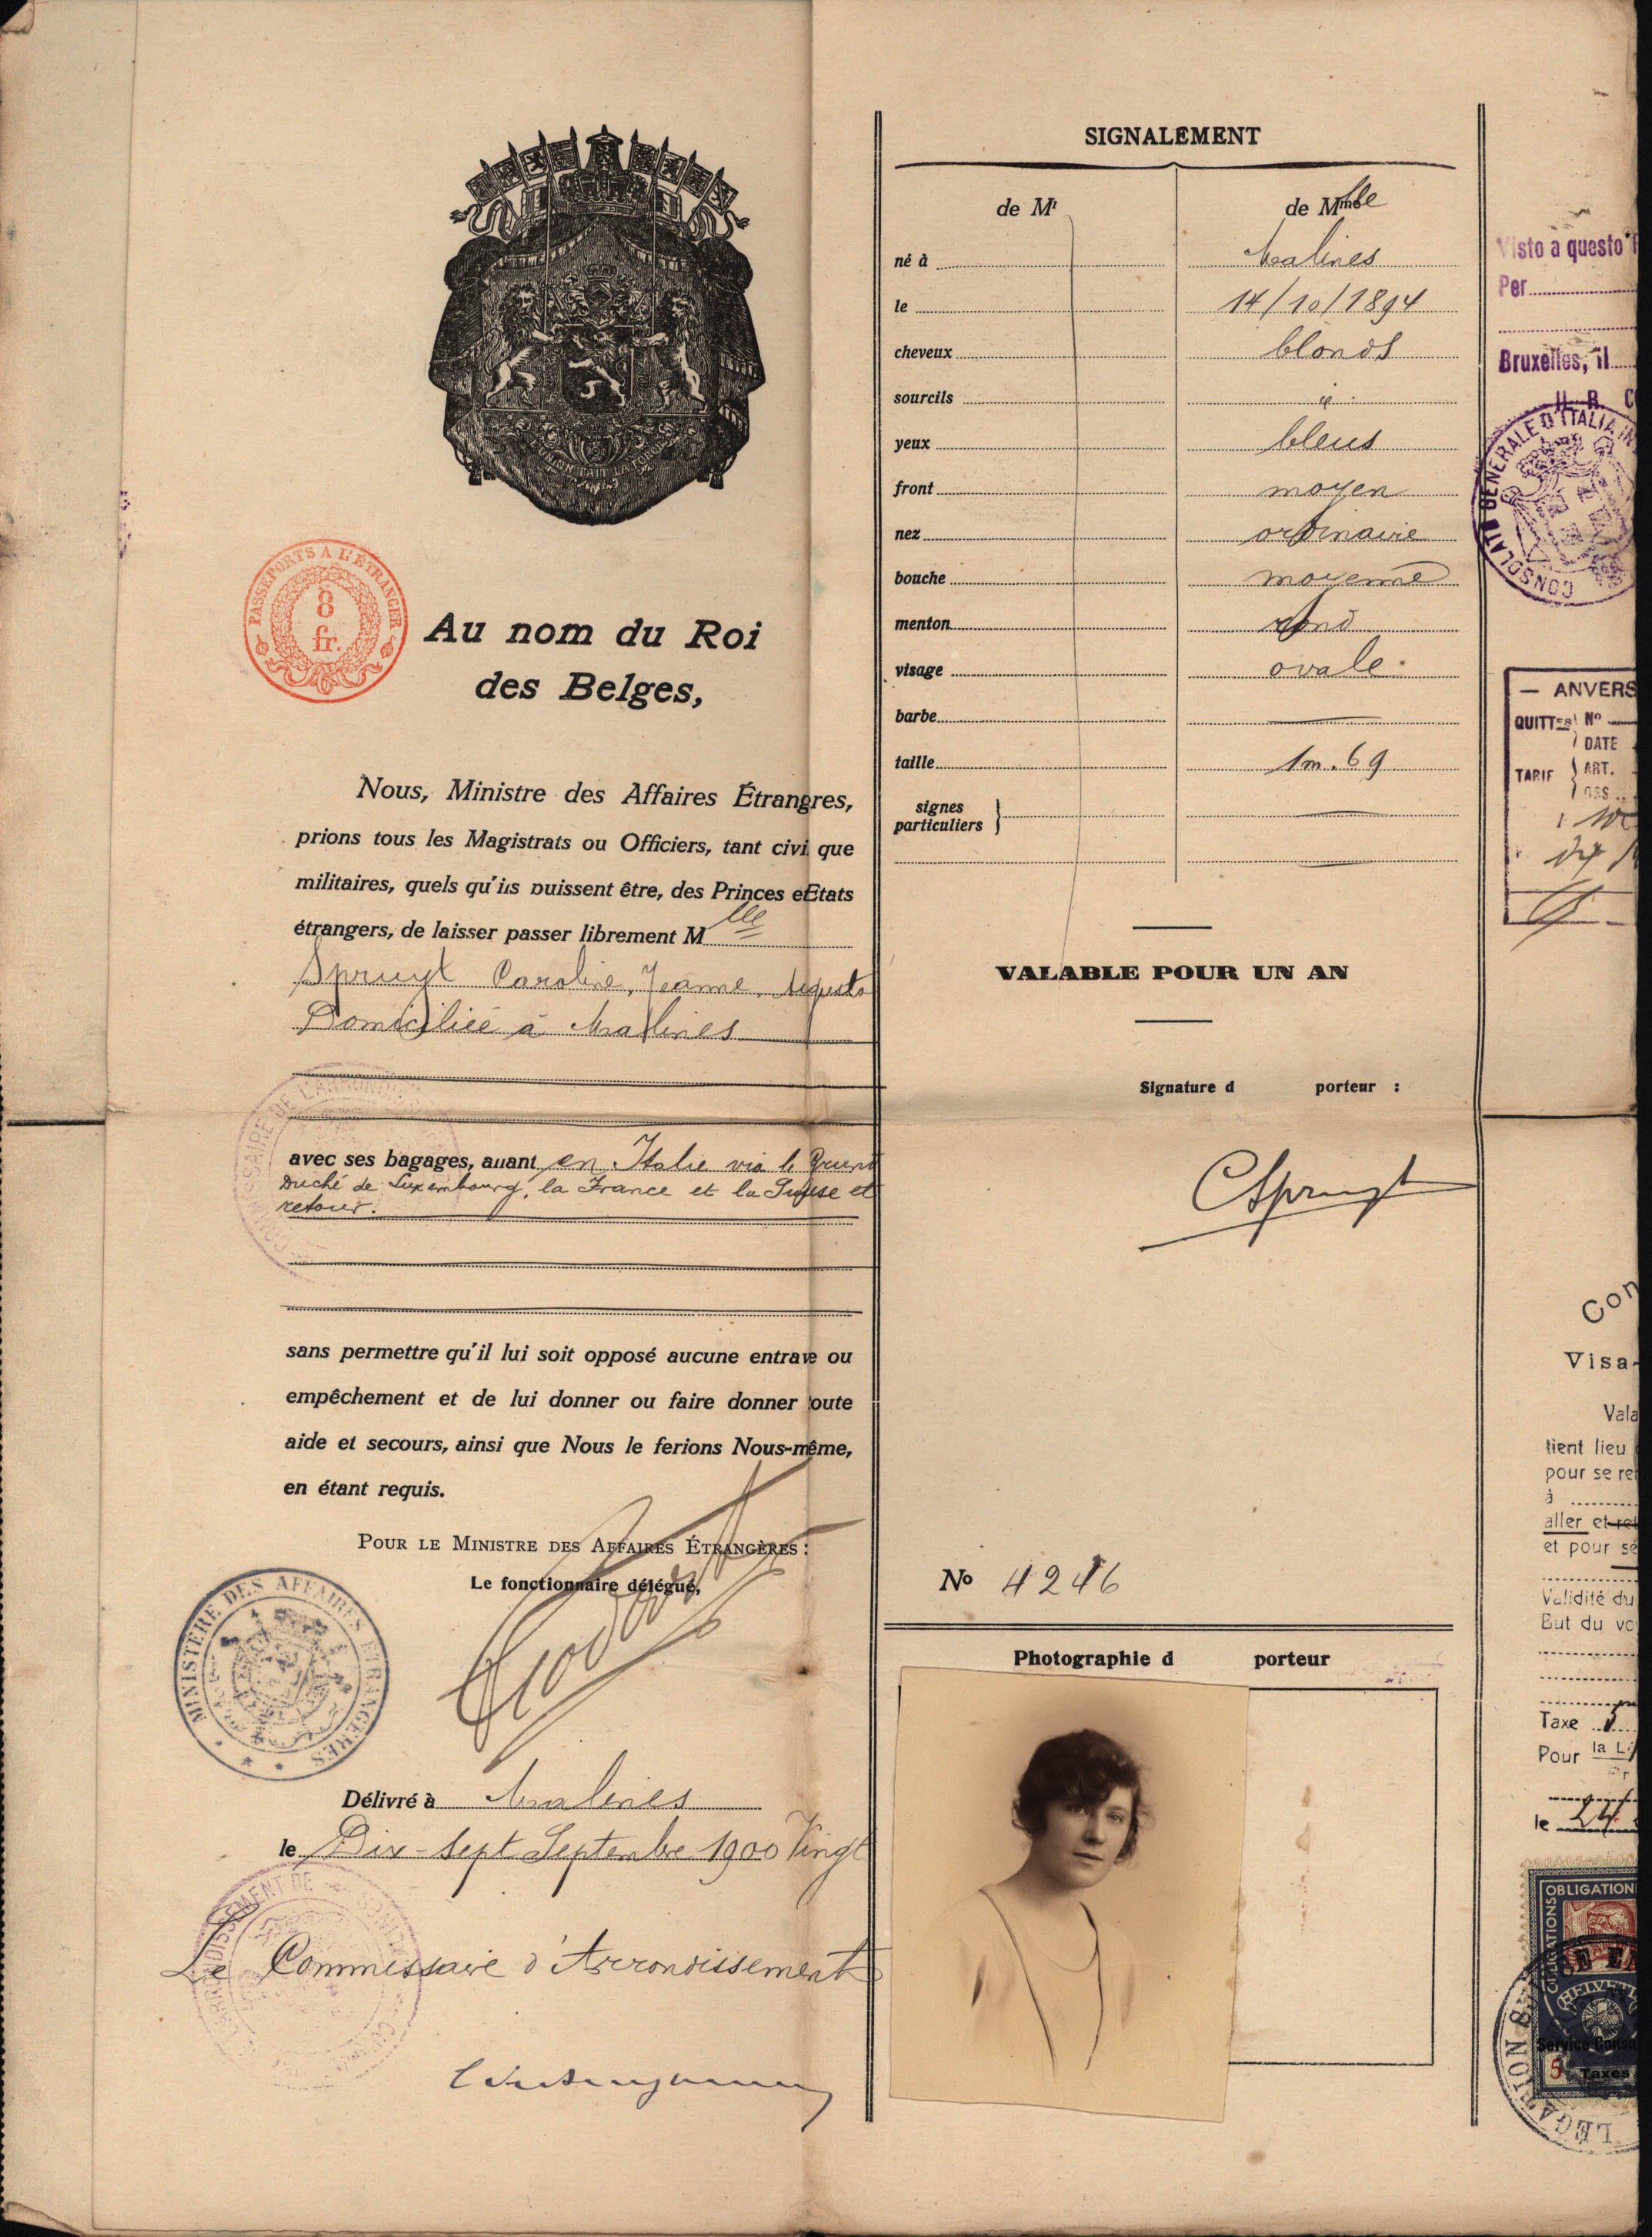 L'UNION FAIT LA FORCE
PASSEPORTS A L'ÉTRANGER
8
fr.
Au nom du Roi
des Belges,
Nous, Ministre des Affaires Étrangres,
prions tous les Magistrats ou Officiers, tant civi que
militaires, quels qu'ils puissent être, des Princes e Etats
étrangers, de laisser passer librement Mlle
Spruyt Caroline, Jeanne, Augusta
Domiciliée à Malines
COMMISSAIRE DE L'ARRONDI
avec ses bagages, allant en Italie via le Grand
Duché de Luxembourg, la France et la Suisse et
retour.
sans permettre qu'il lui soit opposé aucune entrave ou
empêchement et de lui donner ou faire donner toute
aide et secours, ainsi que Nous le ferions Nous-même,
en étant requis.
POUR LE MINISTRE DES AFFAIRES ÉTRANGÈRES:
Le fonctionnaire délégué,
MINISTÈRE DES AFFAIRES ETRANGERES
Délivré à Malines
le Dix-sept Septembre 1900 Vingt
L'ARRONDISSEMENT DE
Le Commissaire d'Arrondissement
SIGNALEMENT
de Mr
de Mmelle
né à Malines
le 14/10/1894
cheveux blonds
sourcils id.
yeux bleus
front moyen
nez ordinaire
bouche moyenne
menton rond
visage ovale.
barbe
taille 1m.69
signes
particuliers
VALABLE POUR UN AN
Signature d porteur :
CSpruyt
No 4246
Photographie d porteur
Visto a questo
Per
Bruxelles, il
CONSOLATO GENERALE D'ITALIA IN
— ANVERS
QUITTce No
DATE
TARIF ART.
OBS
Con
Visa-
Vala
tient lieu
pour se re
à
aller et ret
et pour sé
Validité du
But du vo
Taxe 5
Pour la L
le 24
OBLIGATION
OBLIGATIONS
HELVET
Service Consu
5
Taxes
LEGATION